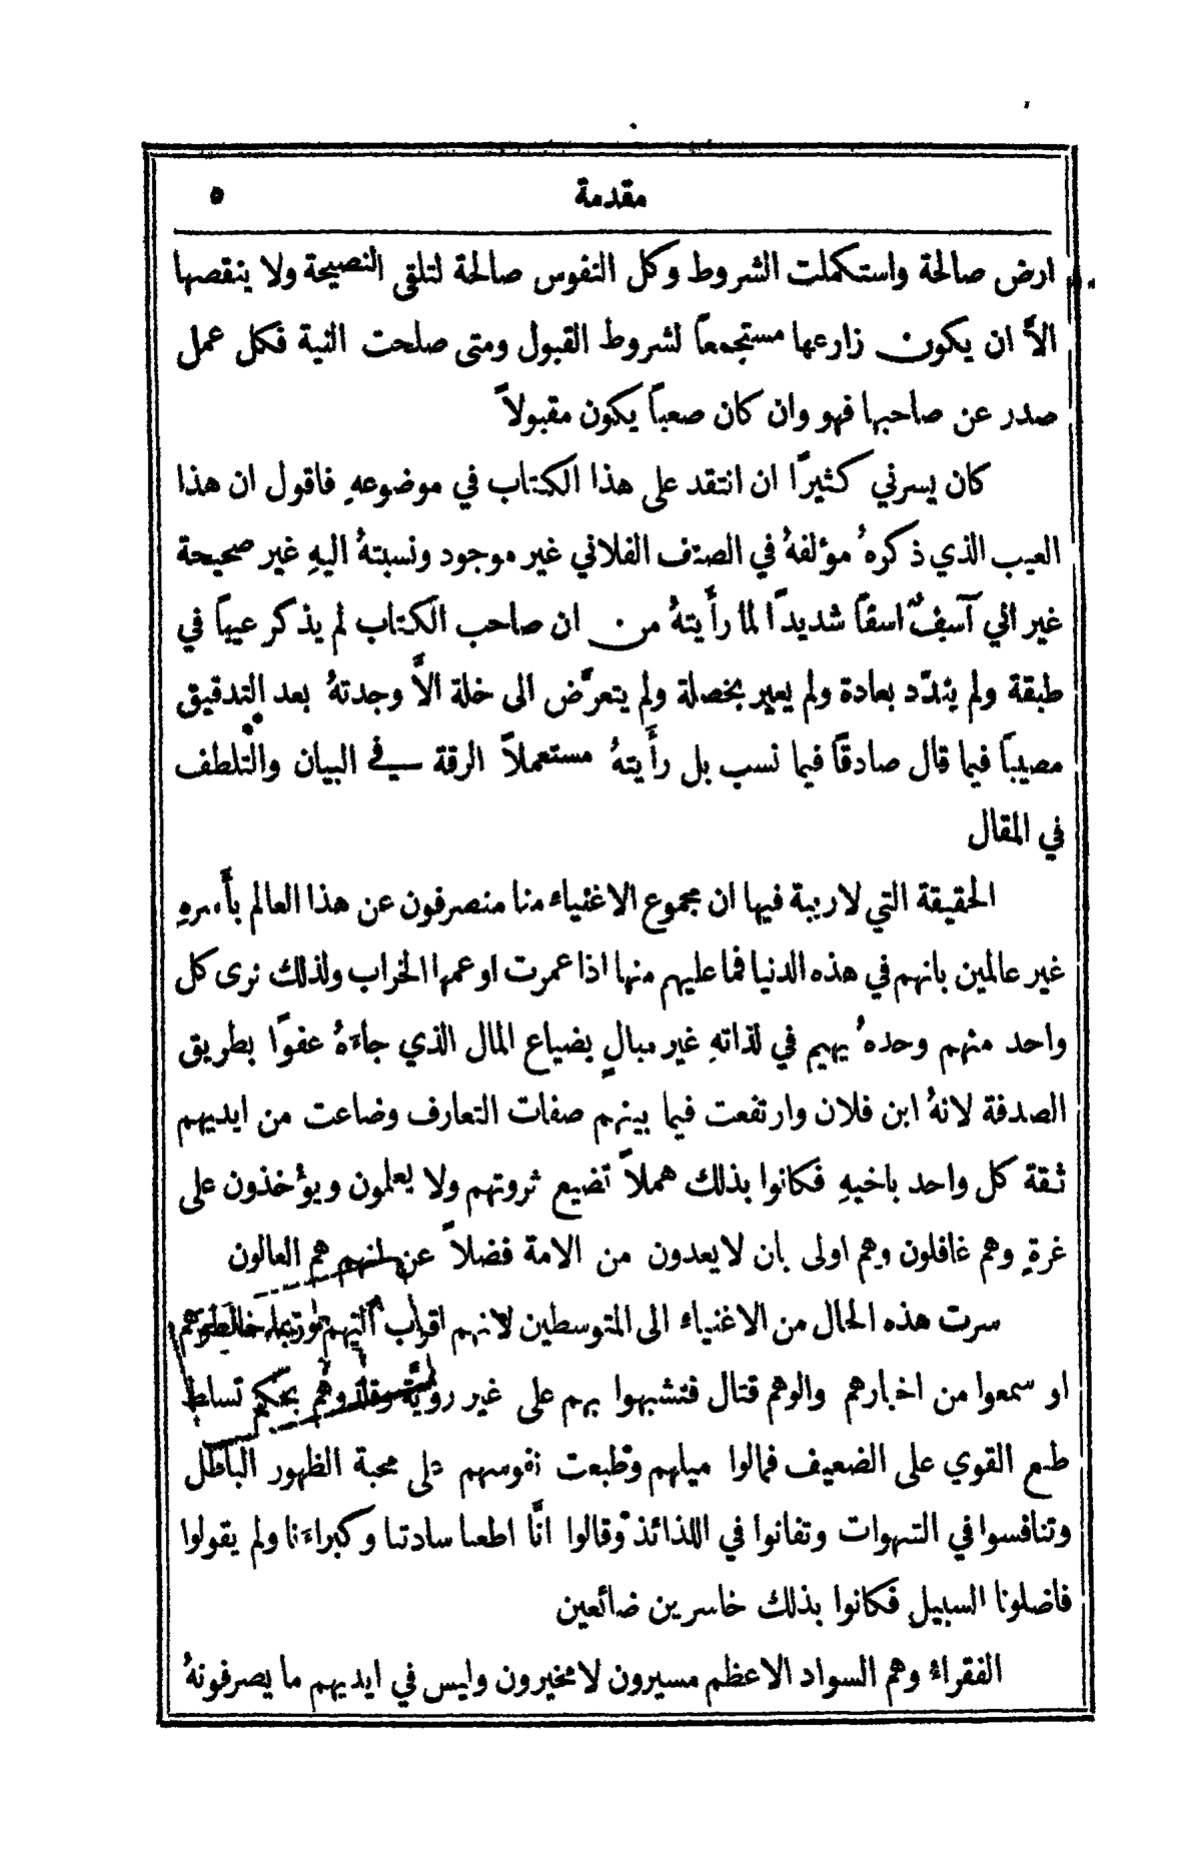 مقدمة ٥
ارض صالحة واستكملت الشروط وكل النفوس صالحة لتلقى النصيحة ولا ينقصها
الاَّ ان يكون زارعها مستجمعاً لشروط القبول ومتى صلحت النية فكل عمل
صدر عن صاحبها فهو وان كان صعباً يكون مقبولاً
كان يسرني كثيرًا ان انتقد على هذا الكتاب في موضوعهِ فاقول ان هذا
العيب الذي ذكرهُ مؤلفهُ في الصنف الفلاني غير موجود ونسبتهُ اليهِ غير صحيحة
غير اني آسفٌ اسفاً شديدًا لما رأَيتهُ من ان صاحب الكتاب لم يذكر عيباً في
طبقة ولم يندّد بعادة ولم يعير بخصلة ولم يتعرَّض الى خلة الاَّ وجدتهُ بعد التدقيق
مصيباً فيما قال صادقاً فيما نسب بل رأَيتهُ مستعملاً الرقة في البيان والتلطف
في المقال
الحقيقة التي لا ريبة فيها ان مجموع الاغنياء منا منصرفون عن هذا العالم بأَسرهِ
غير عالمين بانهم في هذه الدنيا فما عليهم منها اذا عمرت او عمها الخراب ولذلك نرى كل
واحد منهم وحدهُ يهيم في لذاتهِ غير مبالٍ بضياع المال الذي جاءَهُ عفوًا بطريق
الصدفة لانهُ ابن فلان وارتفعت فيما بينهم صفات التعارف وضاعت من ايديهم
ثقة كل واحد باخيهِ فكانوا بذلك هملاً تضيع ثروتهم ولا يعلمون ويؤخذون على
غرةٍ وهم غافلون وهم اولى بان لا يعدون من الامة فضلاً عن انهم هم العالون
سرت هذه الحال من الاغنياء الى المتوسطين لانهم اقرب اليهم وربما خالطوهم
او سمعوا من اخبارهم والوهم قتال فتشبهوا بهم على غير رويَّة وقلدوهم بحكم تسلط
طبع القوي على الضعيف فمالوا ميلهم وطبعت نفوسهم على محبة الظهور الباطل
وتنافسوا في الشهوات وتفانوا في اللذائذ وقالوا انَّا اطعنا سادتنا وكبراءَنا ولم يقولوا
فاضلونا السبيل فكانوا بذلك خاسرين ضائعين
الفقراءُ وهم السواد الاعظم مسيرون لا مخيرون وليس في ايديهم ما يصرفونهُ